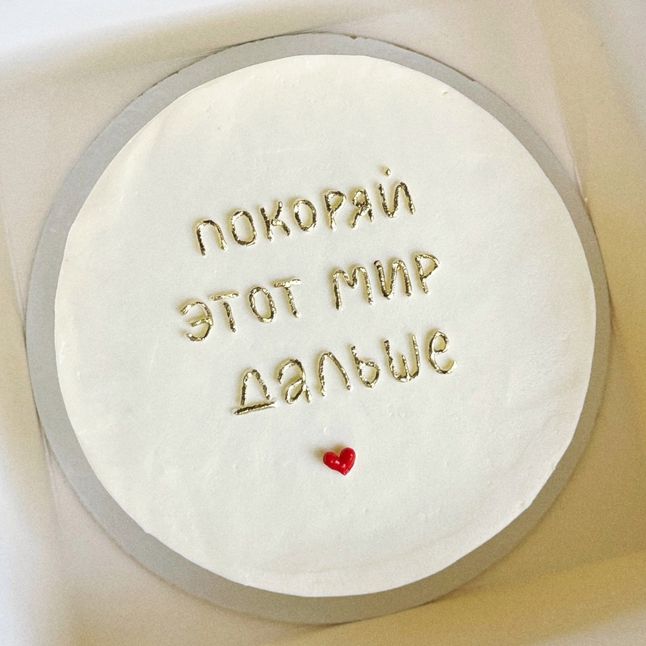 покоряй
этот мир
дальше